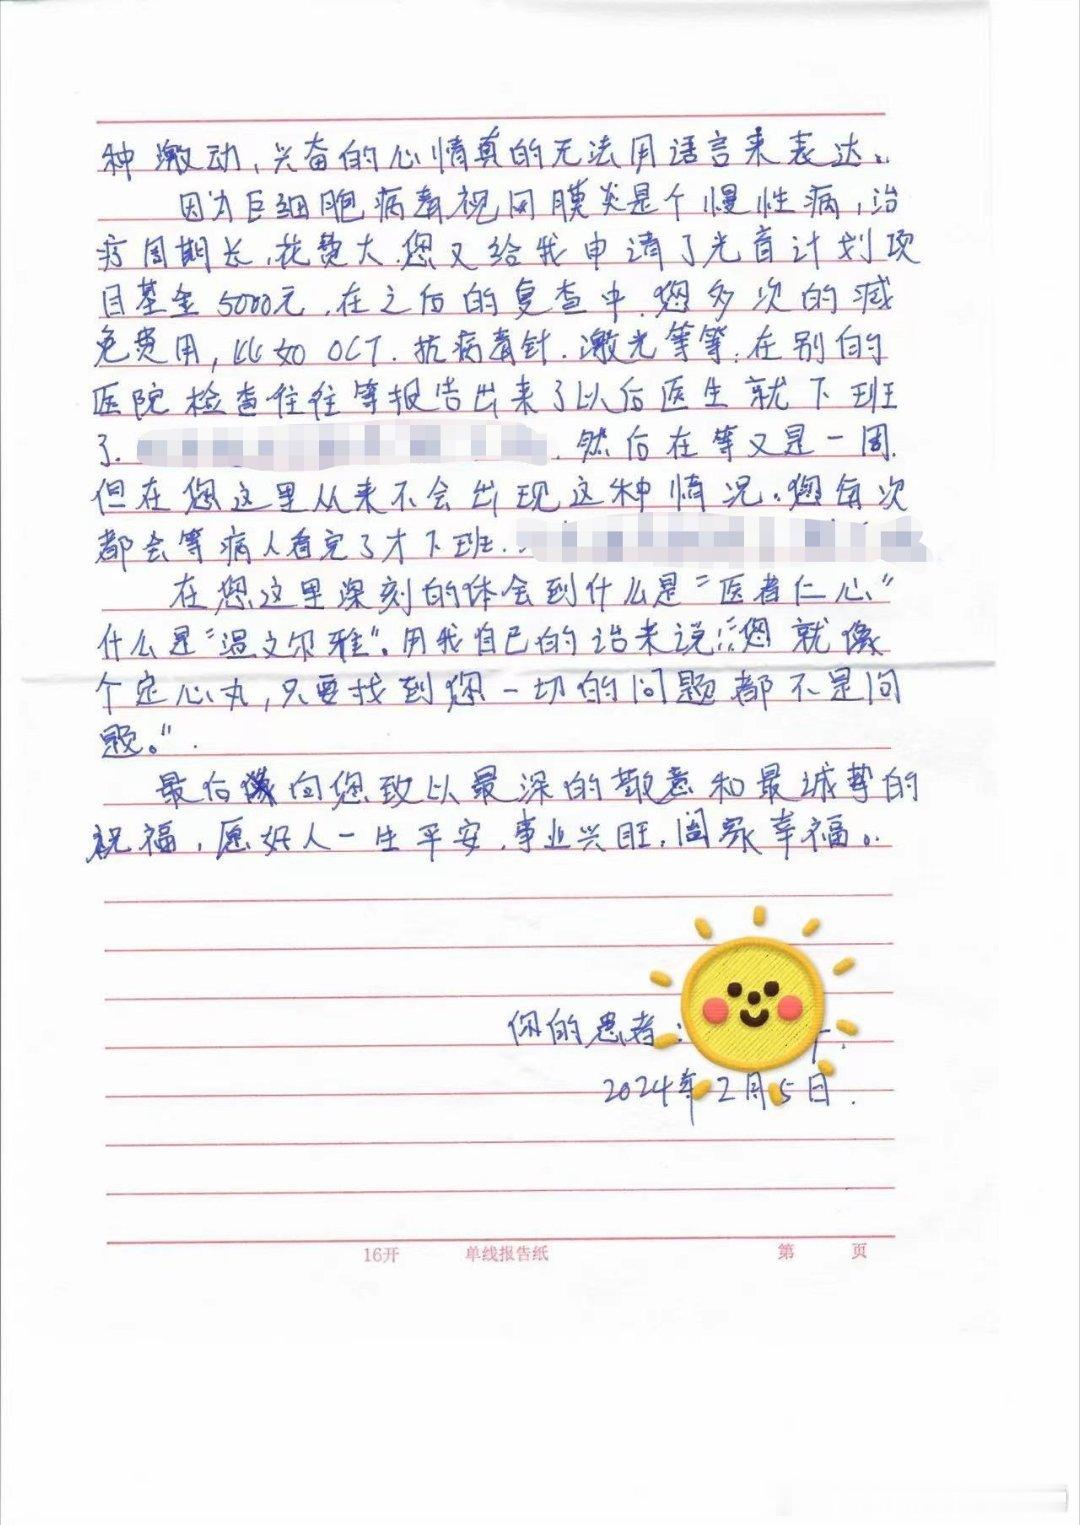 种激动、兴奋的心情真的无法用语言来表达。
因为巨细胞病毒视网膜炎是个慢性病，治
疗周期长，花费大.您又给我申请了光音计划项
目基金5000元.在之后的复查中.您多次的减
免费用，比如OCT.抗病毒针.激光等等.在别的
医院检查往往等报告出来了以后医生就下班
了. .然后在等又是一周.
但在您这里从来不会出现这种情况。您每次
都会等病人看完了才下班.
在您这里深刻的体会到什么是“医者仁心”
什么是“温文尔雅”。用我自己的话来说：“您就像
个定心丸，只要找到您一切的问题都不是问
题。”.
最后 向您致以最深的敬意和最诚挚的
祝福，愿好人一生平安.事业兴旺.阖家幸福。
你的患者：
2024年2月5日.
16开 单线报告纸 第 页